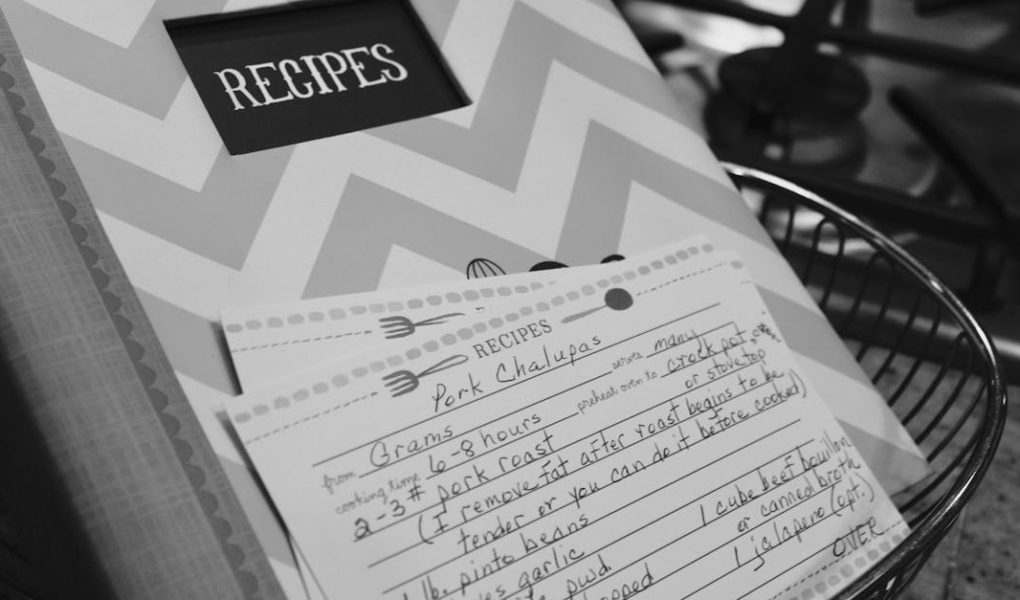 RECIPES
RECIPES
Pork Chalupas
from Grams serves many
cooking time 6-8 hours preheat oven to crock pot,
2-3# pork roast or stovetop
(I remove fat after roast begins to be
tender or you can do it before cooked)
lb. pinto beans
garlic 1 cube beef bouillon
pwd. or canned broth
1 jalapeno (opt.)
OVER